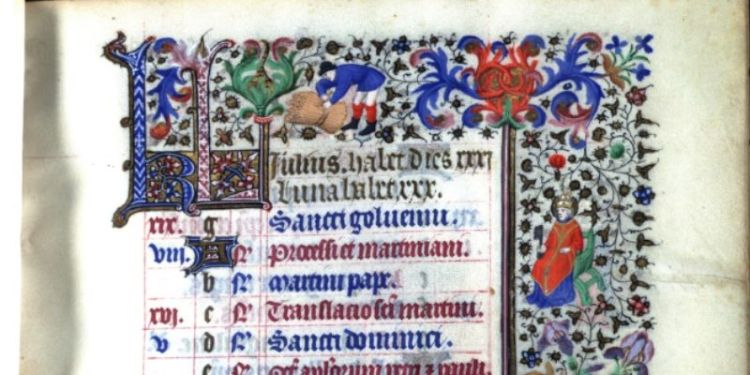 KL Julius. habet dies xxxj
Luna habet xxx.
xix. g Sancti goluenni.
viij. A N̄ Processi et martiniani.
b N̄ Martini pape.
xvj. c N̄ Translacio sci̅ martini.
v d N̄ Sancti dominici.
e